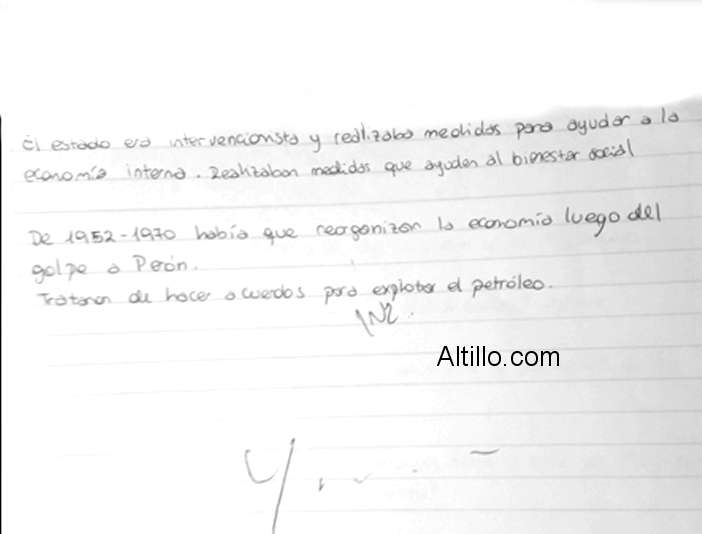 El estado era intervencionista y realizaba medidas para ayudar a la
economía interna. Realizaban medidas que ayuden al bienestar social
De 1952-1970 había que reorganizar la economía luego del
golpe a Perón.
Trataron de hacer acuerdos para explotar el petróleo.
Altillo.com